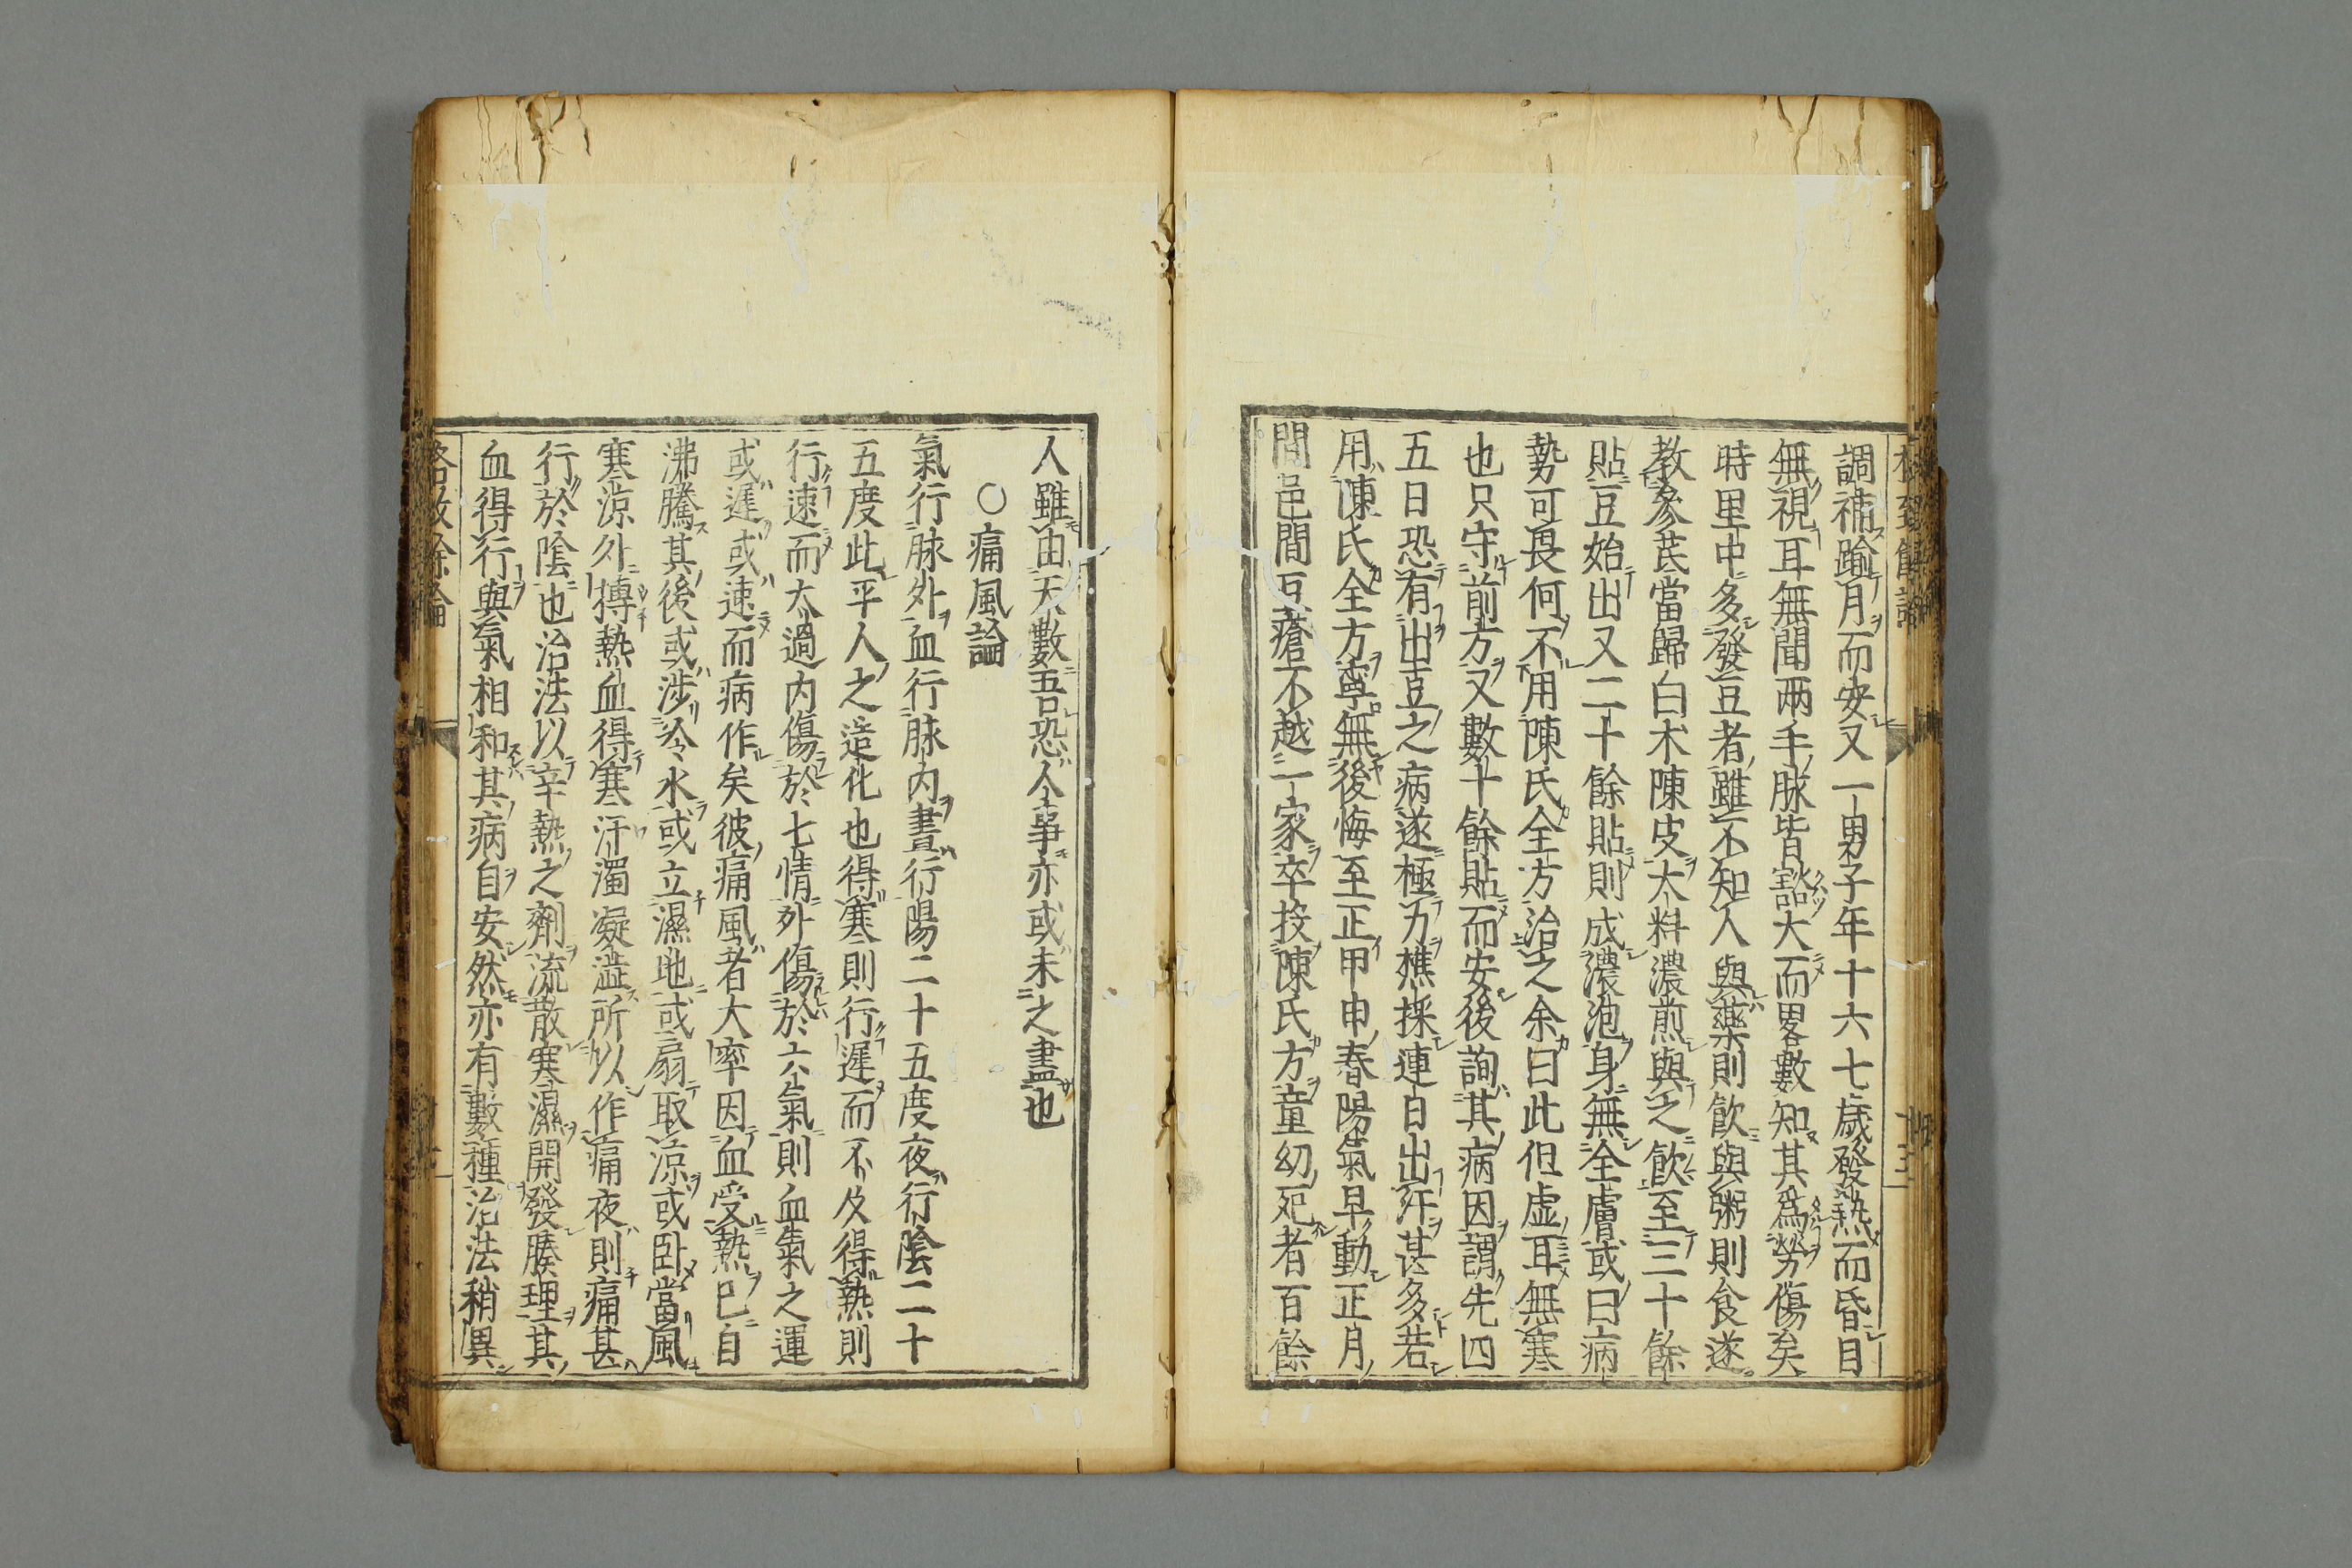 調補踰月而安又一男子年十六七歲發熱而昏目
無視耳無聞兩手脉皆豁大而畧數知其爲勞傷矣
時里中多發豆者雖不知人與藥則飮與粥則食遂
教參芪當歸白朮陳皮大料濃煎與之飮至三十餘
貼豆始出又二十餘貼則成濃泡身無全膚或曰病
勢可畏何不用陳氏全方治之余曰此但虛耳無寒
也只守前方又數十餘貼而安後詢其病因謂先四
五日恐有出豆之病遂極力樵採連日出汗甚多若
用陳氏全方寧無後悔至正甲申春陽氣早動正月
間邑間豆瘡不越一家卒投陳氏方童幼死者百餘
人雖由天數吾恐人事亦或未之盡也
○痛風論
氣行脉外血行脉内晝行陽二十五度夜行陰二十
五度此平人之造化也得寒則行遲而不及得熱則
行速而太過内傷於七情外傷於六氣則血氣之運
或遲或速而病作矣彼痛風者大率因血受熱已自
沸騰其後或涉冷水或立濕地或扇取涼或卧當風
寒涼外摶熱血得寒汗濁凝澁所以作痛夜則痛甚
行於陰也治法以辛熱之劑流散寒濕開發腠理其
血得行與氣相和其病自安然亦有數種治法稍異
格致餘論